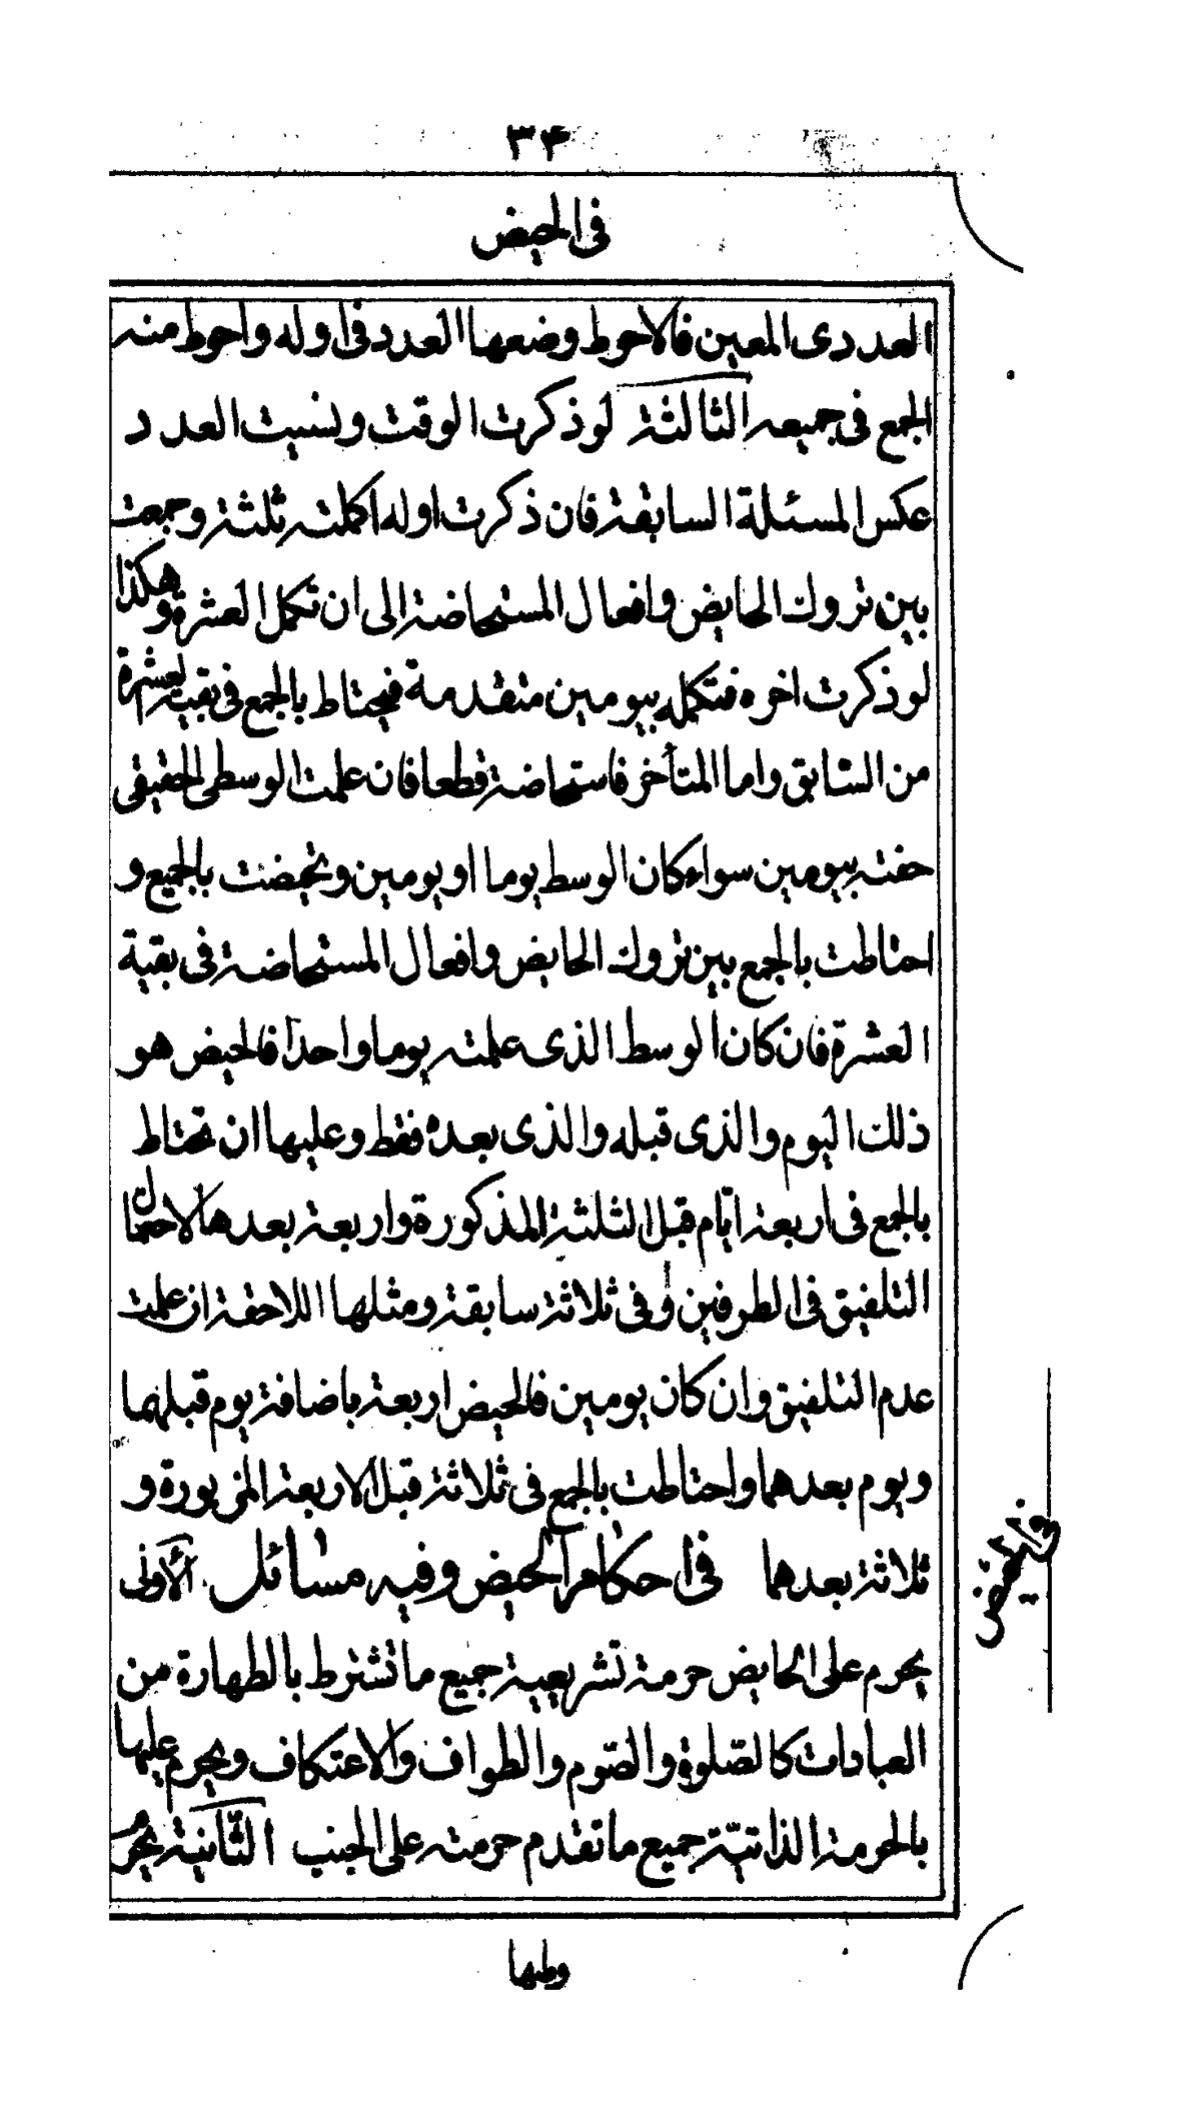 ٣۴
فى الحيض
العددى المعين فالاحوط وضعها العدد فى اوله واحوط منه
الجمع فى جميعه الثالثة لو ذكرت الوقت ونسيت العدد
عكس المسئلة السابقة فان ذكرت اوله اكملته ثلثة وجمعت
بين تروك الحايض وافعال المستحاضة الى ان تكمل العشرة وهكذا
لو ذكرت اخره فتكمله بيومين متقدمة فيحتاط بالجمع فى بقية العشرة
من السابق واما المتأخر فاستحاضة قطعا فان علمت الوسطى الحقيقى
حفته بيومين سواء كان الوسط يوما او يومين وتحيضت بالجميع و
احتاطت بالجمع بين تروك الحايض وافعال المستحاضة فى بقية
العشرة فان كان الوسط الذى علمته يوما واحدا فالحيض هو
ذلك اليوم والذى قبله والذى بعده فقط وعليها ان تحتاط
بالجمع فى اربعة ايّام قبل الثلثة المذكورة واربعة بعدها لاحتمال
التلفيق فى الطرفين وفى ثلاثة سابقة ومثلها اللاحقة ان علمت
عدم التلفيق وان كان يومين فالحيض اربعة باضافة يوم قبلهما
ويوم بعدهما واحتاطت بالجمع فى ثلاثة قبل الاربعة المزبورة و
ثلاثة بعدهما فى احكام الحيض وفيه مسائل الأولى
يحرم على الحايض حرمة تشريعية جميع ما تشترط بالطهارة من
العبادات كالصّلوة والصّوم والطواف والاعتكاف ويحرم عليها
بالحرمة الذاتيّة جميع ما تقدم حرمته على الجنب الثّانية يحرم
وطيها